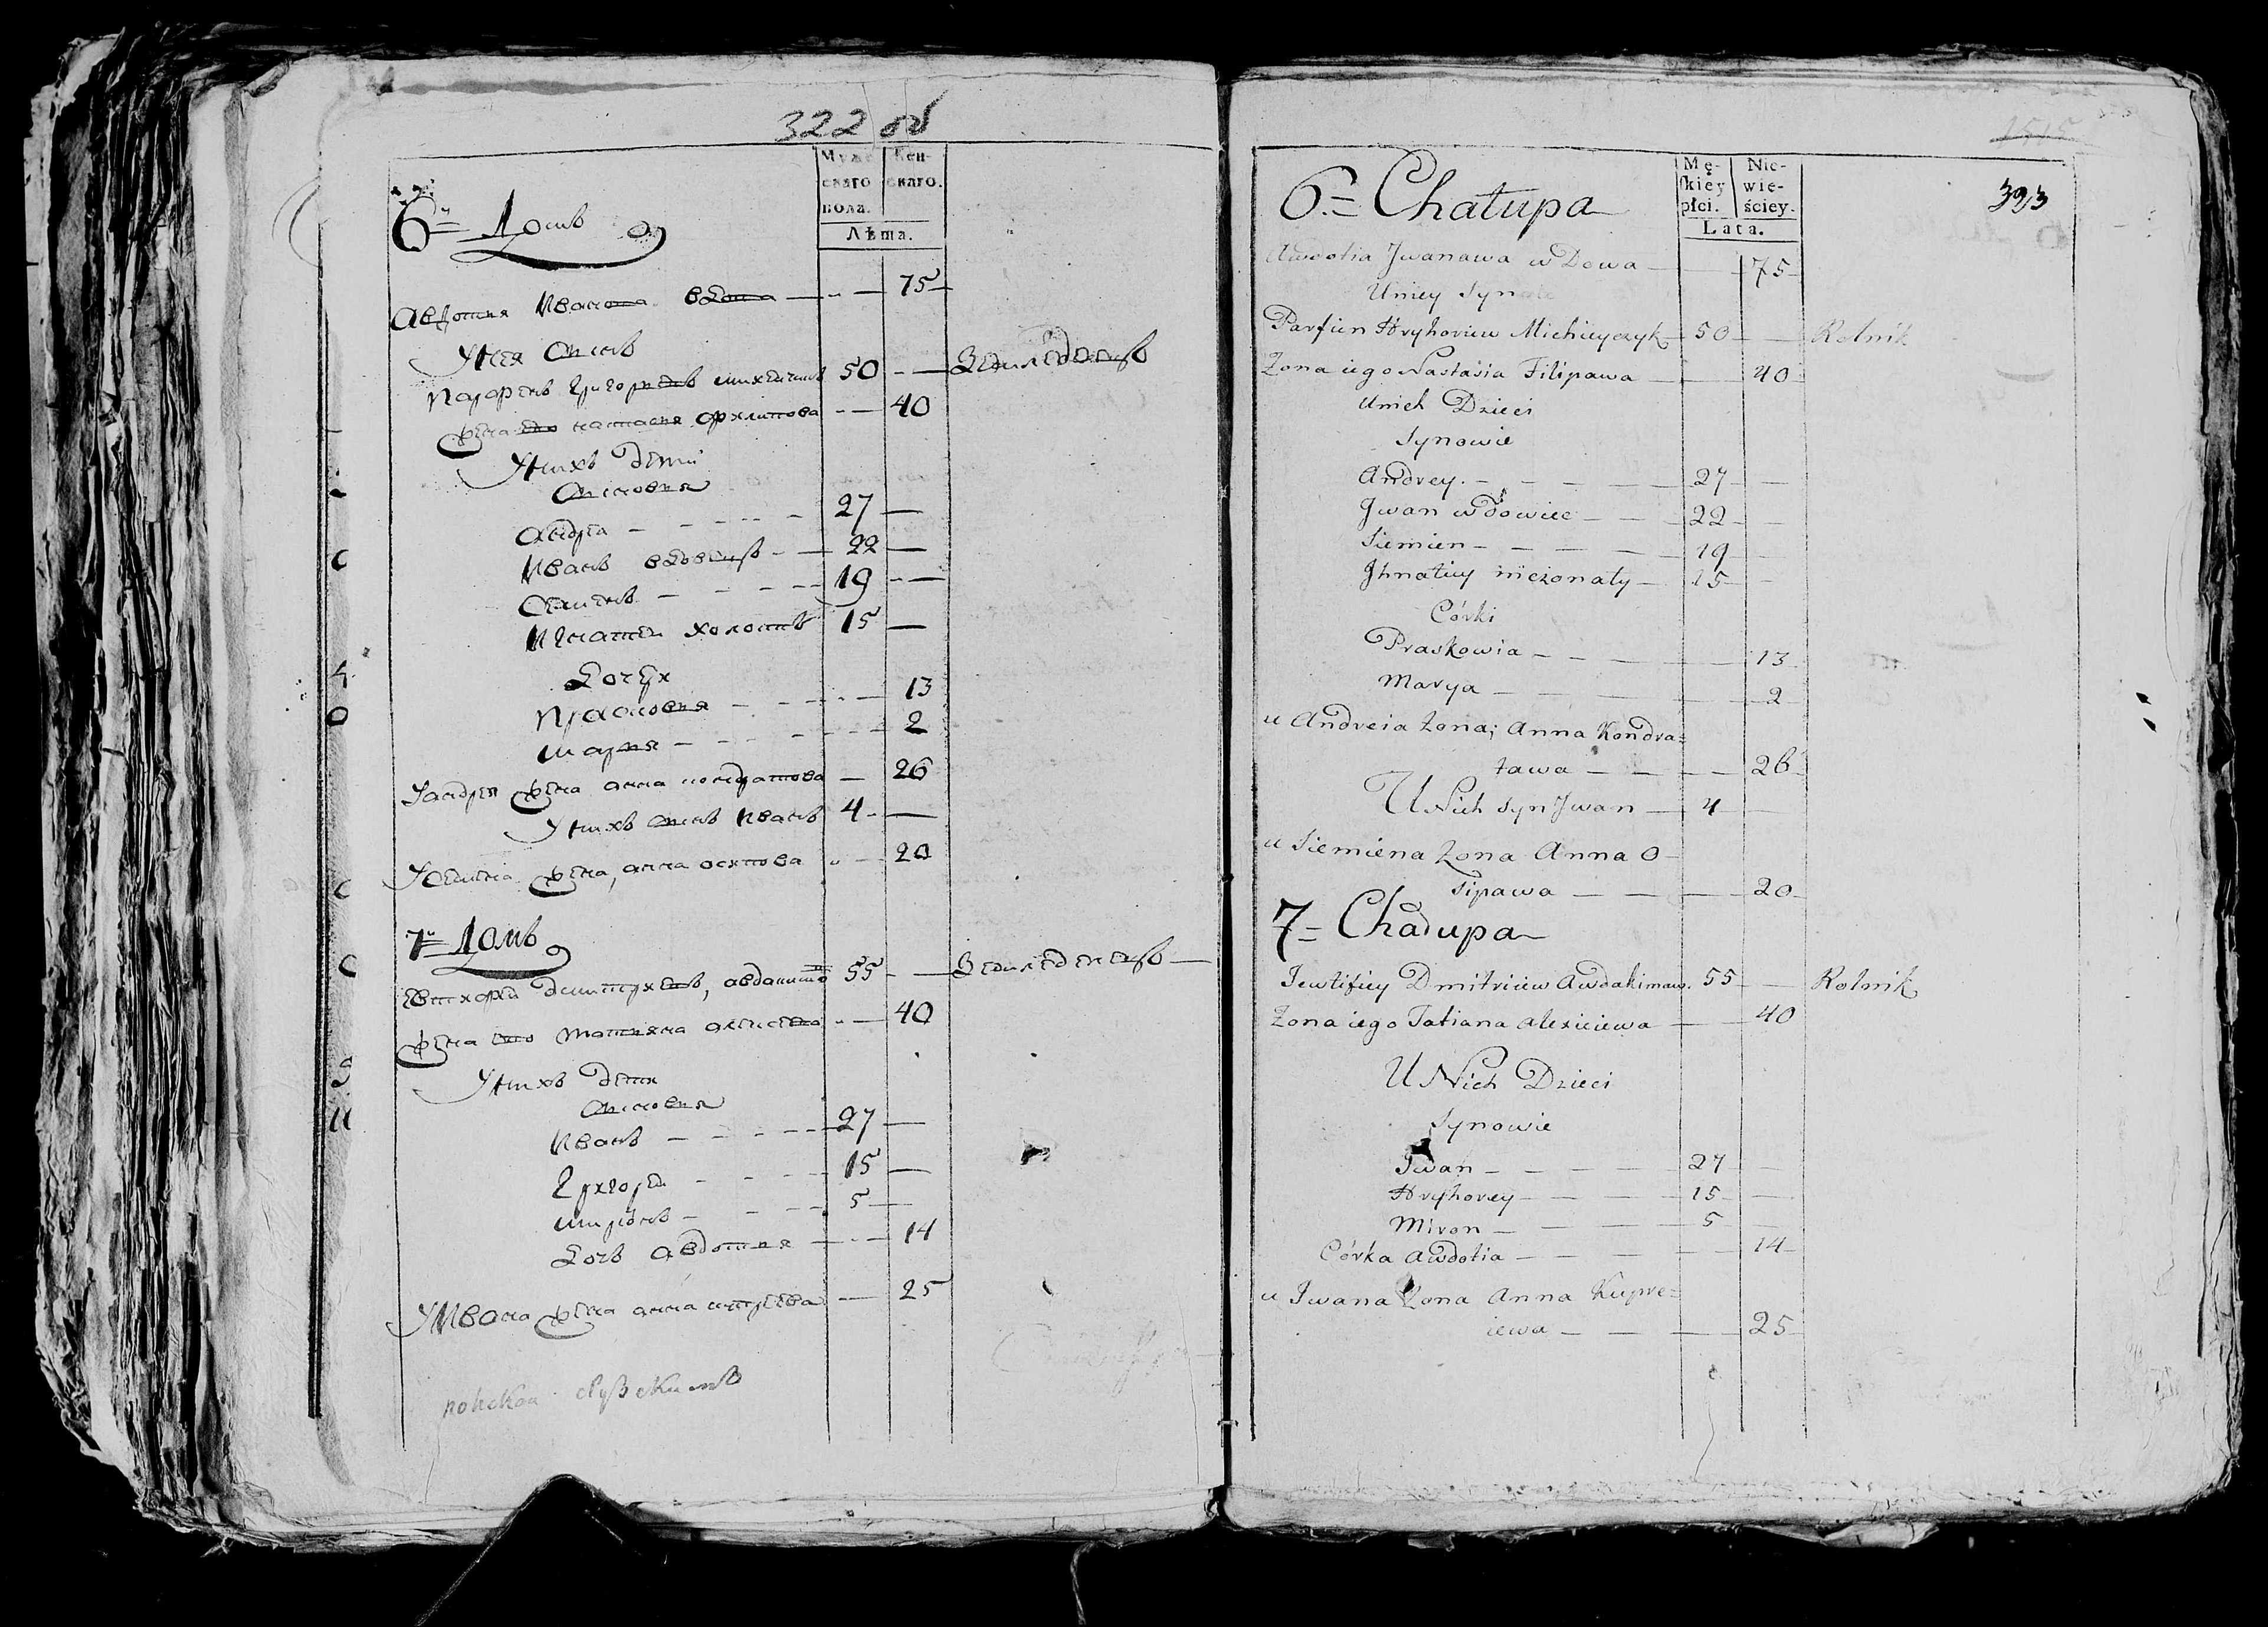 322 об
Муже Жен-
скаго скаго.
пола.
Лѣта.
6й Домъ
Авдотия Иванова вдова — 75
У нея сынъ
Парфенъ Григориевъ михеичикъ 50 — Земледелецъ
жена его настасия Филипова — 40
У нихъ дети
сыновия
Андреи 27
Иванъ вдовецъ 22
Семенъ 19
Игнатеи холостъ 15
Дочери
Прасковия 13
мария 2
У андрея жена анна кондратова — 26
У нихъ сынъ Иванъ 4
У Семена жена, анна осипова 20
7й Домъ
Дмитриевъ, 55 — Земледелецъ
жена его татияна алексеева 40
У нихъ дети
сыновия
Иванъ 27
Григореи 15
миронъ 5
Дочь авдотия 14
У Ивана жена анна 25
393
Mę- Nie-
skiey wie-
płci. ściey.
Lata.
6.= Chałupa
Awdotia Jwanawa wDowa — 75
Uniey Syn
Parfien Hryhoriew Michieyczyk 50 — Rolnik
Żona iego Nastasia Filipawa — 40
Unich Dzieci
Synowie
Andrey 27
Jwan wdowiec 22
Siemien 19
Jhnatiey nieżonaty 15
Córki
Praskowia 13
Marya 2
u Andreia żona; Anna Kondra=
tawa 26
U Nich Syn Jwan 4
u Siemiena żona Anna O-
sipawa 20
7= Chałupa
Jewtifiey Dmitriiew Awdakimaw. 55 — Rolnik
Żona iego Tatiana alexieiewa 40
U Nich Dzieci
Synowie
Jwan 27
Hryhorey 15
Miron 5
Córka awdotia 14
u Jwana żona Anna Kupre=
iewa 25